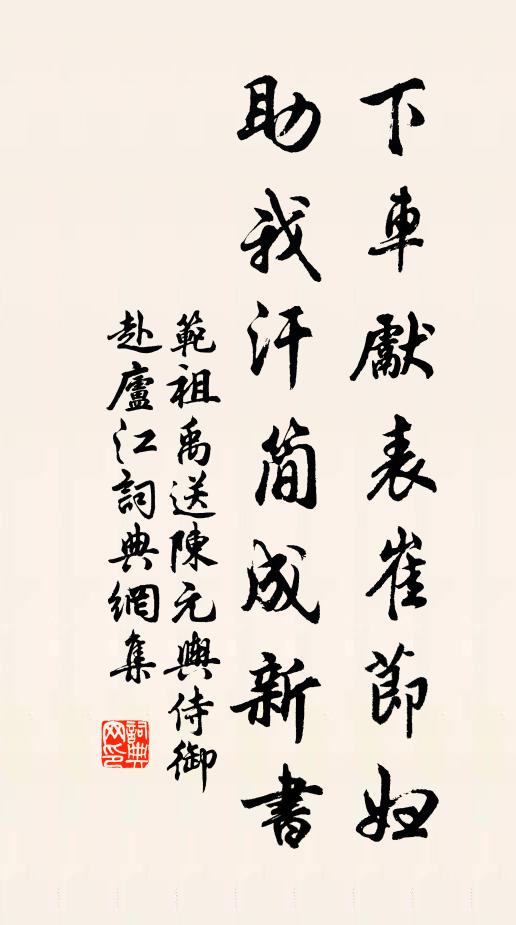 下車獻表崔節婦
助我汗簡成新書
範祖禹送陳元輿侍御
赴廬江詞典網集
詞典網印